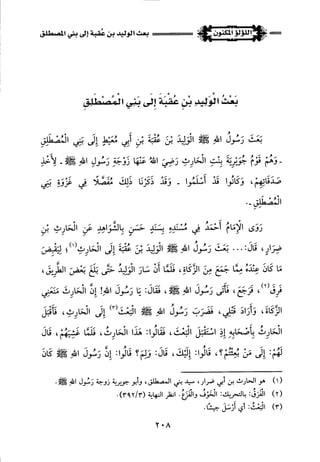 اللؤلؤ المكنون بعث الوليد بن عقبة إلى بني المصطلق
بَعْثُ الْوَلِيدِ بْنِ عُقْبَةَ إِلَى بَنِي الْمُصْطَلِقِ
بَعَثَ رَسُولُ اللهِ ﷺ الْوَلِيدَ بْنَ عُقْبَةَ بْنِ أَبِي مُعَيْطٍ إِلَى بَنِي الْمُصْطَلِقِ
- وَهُمْ قَوْمُ جُوَيْرِيَةَ بِنْتِ الْحَارِثِ رَضِيَ اللهُ عَنْهَا زَوْجَةِ رَسُولِ اللهِ ﷺ - لِأَخْذِ
صَدَقَاتِهِمْ، وَكَانُوا قَدْ أَسْلَمُوا - وَقَدْ ذَكَرْنَا ذَلِكَ مُفَصَّلًا فِي غَزْوَةِ بَنِي
الْمُصْطَلِقِ -.
رَوَى الْإِمَامُ أَحْمَدُ فِي مُسْنَدِهِ بِسَنَدٍ حَسَنٍ بِالشَّوَاهِدِ عَنِ الْحَارِثِ بْنِ
ضِرَارٍ، قَالَ: ... بَعَثَ رَسُولُ اللهِ ﷺ الْوَلِيدَ بْنَ عُقْبَةَ إِلَى الْحَارِثِ(١)؛ لِيَقْبِضَ
مَا كَانَ عِنْدَهُ مِمَّا جَمَعَ مِنَ الزَّكَاةِ، فَلَمَّا أَنْ سَارَ الْوَلِيدُ حَتَّى بَلَغَ بَعْضَ الطَّرِيقِ،
فَرِقَ(٢)، فَرَجَعَ، فَأَتَى رَسُولَ اللهِ ﷺ، فَقَالَ: يَا رَسُولَ اللهِ! إِنَّ الْحَارِثَ مَنَعَنِي
الزَّكَاةَ، وَأَرَادَ قَتْلِي، فَضَرَبَ رَسُولُ اللهِ ﷺ الْبَعْثَ(٣) إِلَى الْحَارِثِ، فَأَقْبَلَ
الْحَارِثُ بِأَصْحَابِهِ إِذِ اسْتَقْبَلَ الْبَعْثَ، فَقَالُوا: هَذَا الْحَارِثُ، فَلَمَّا غَشِيَهُمْ، قَالَ
لَهُمْ: إِلَى مَنْ بُعِثْتُمْ؟، قَالُوا: إِلَيْكَ، قَالَ: وَلِمَ؟ قَالُوا: إِنَّ رَسُولَ اللهِ ﷺ كَانَ
(١) هو الحارث بن أبي ضرار، سيد بني المصطلق، وأبو جويرية زوجة رسول الله ﷺ.
(٢) الفَرَقُ: بالتحريك: الخَوْفُ والفَزَعُ. انظر النهاية (٣/ ٣٩٢).
(٣) الْبَعْثُ: أي أرسل جيشًا.
٢٠٨